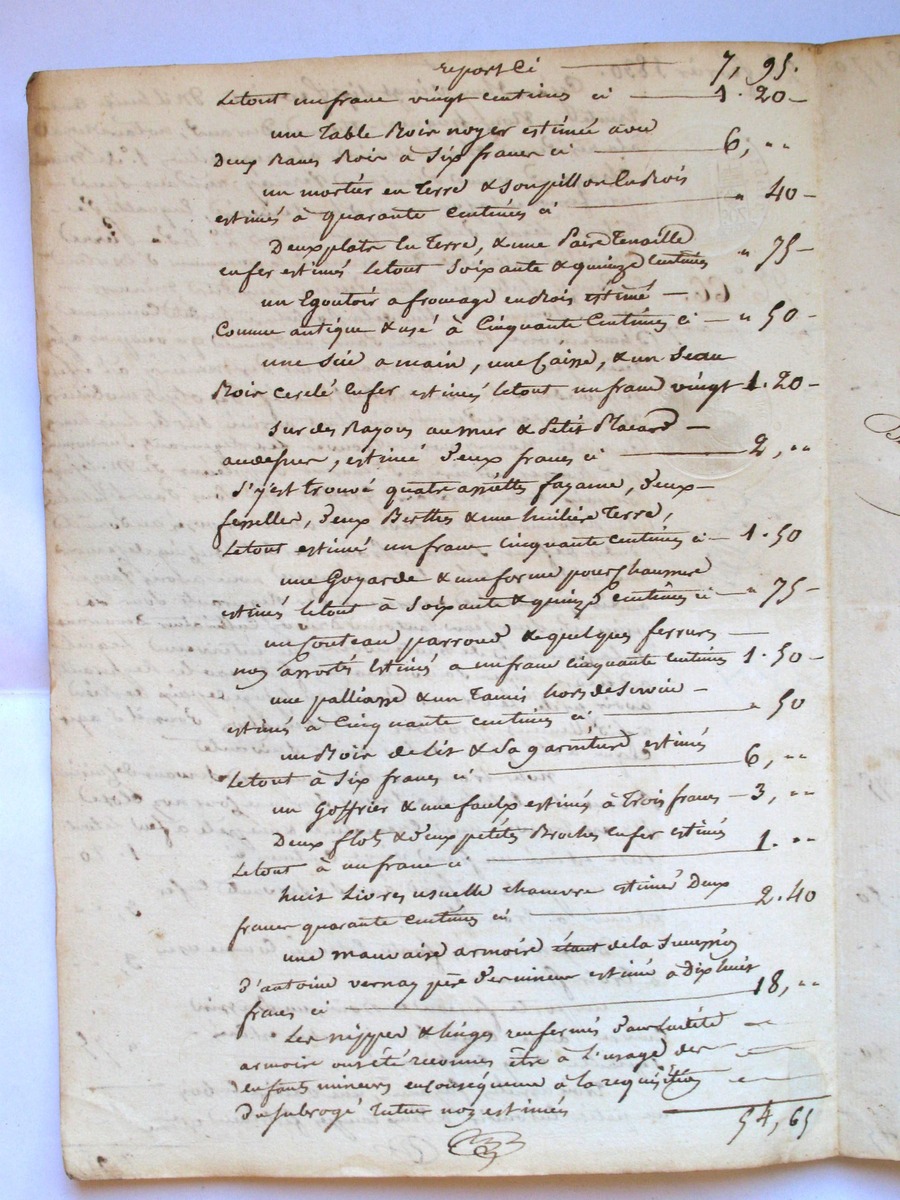 report ci 7, 95.
Le tout un franc vingt centimes ci 1. 20
une Table Bois noyer estimée avec
Deux Bancs Bois à Six francs ci 6, "
un mortier en Terre & Soupillon en Bois
estimés à quarante Centimes ci " 40
Deux plats en Terre, & une Paire Tenaille
en fer estimés le tout Soixante & quinze Centimes " 75
un Egoutoir a fromage en Bois estimé
Comme antique & usé à Cinquante Centimes ci " 50
une Sie a main, une Caisse, & un Seau
Bois cerclé en fer estimés le tout un franc vingt 1. 20
Sur des Rayons au mur & Petit Placard
au dessus, estimé Deux francs ci 2, "
S'y est trouvé quatre assiettes fayanne, Deux
fesselles, Deux Berthes & une huilière Terre,
Le tout estimé un franc Cinquante Centimes ci 1. 50
une Goyarde & une forme pour Chaussure
estimés le tout à Soixante & quinze Centimes ci " 75
un Couteau parroud & quelques ferrures
non assortés Estimés a un franc Cinquante Centimes 1. 50
une palliasse & un Tamis hors de Service
estimés à Cinquante Centimes ci " 50
un Bois de lit & Sa garniture estimés
Le tout à Six francs ci 6, "
un Goffrier & une faulx estimés à Trois francs 3, "
Deux flots & Deux petites Broches en fer estimés
Le tout à un franc ci 1. "
huit Livres usuelle chanvre estimés Deux
francs quarante Centimes ci 2. 40
une mauvaise armoire étant de la Succession
D'antoine vernay père Des mineurs estimée à Dix huit
francs ci 18, "
Les nippes & linges renfermés Dans Laditte
armoire ont été reconnus être à L'usage des
d enfants mineurs en conséquence à la requisition
Du Subrogé Tuteur non estimés
54, 65